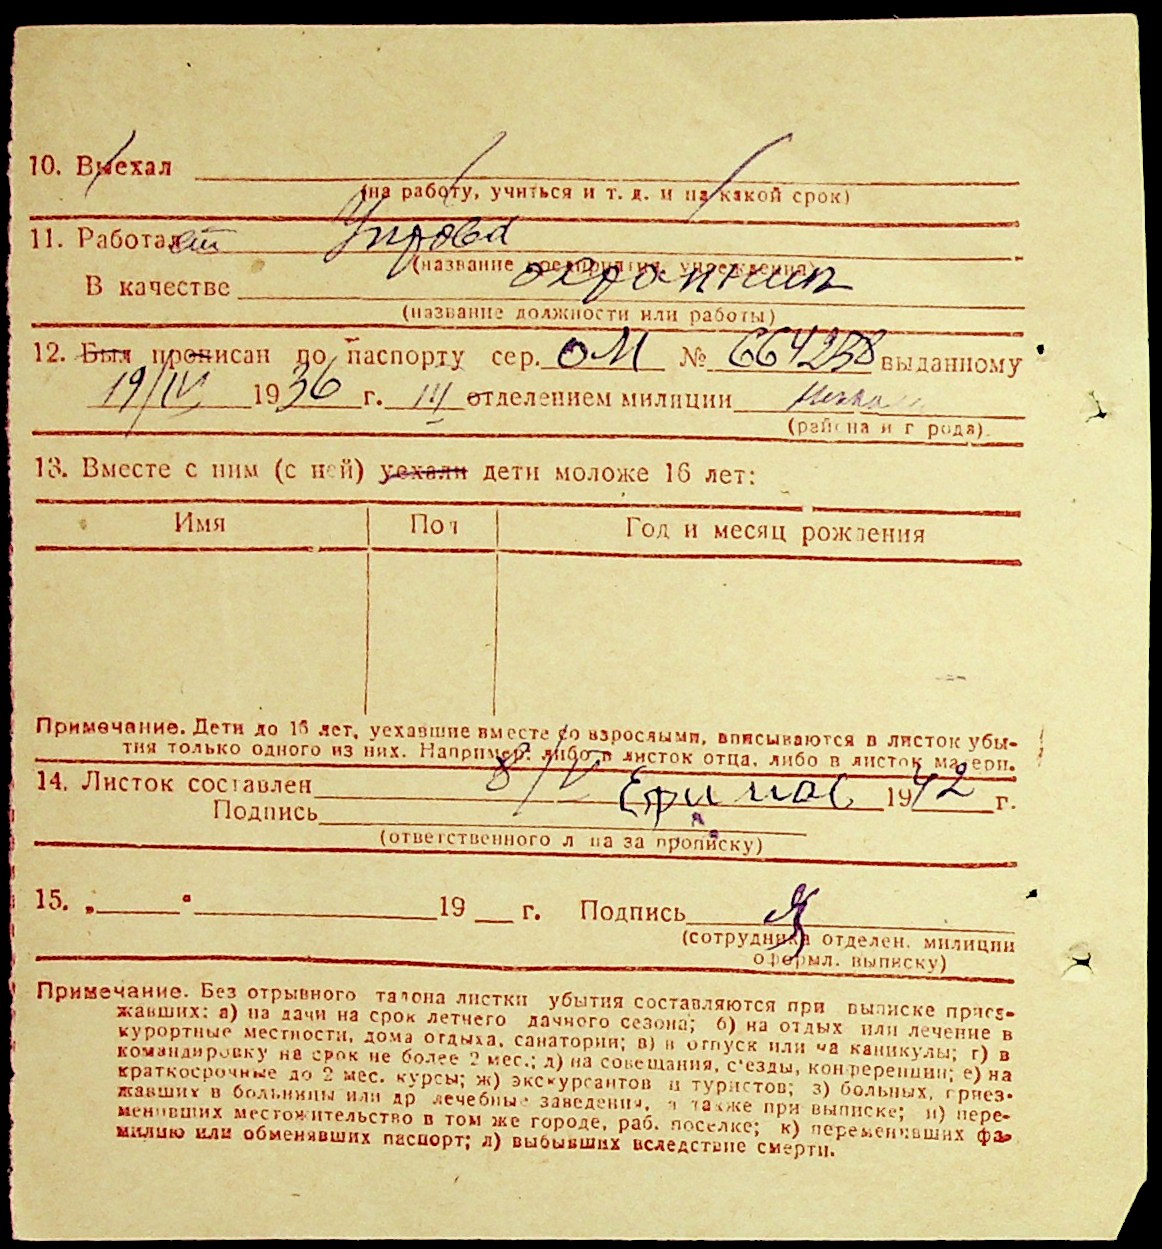 10. Выехал
(на работу, учиться и т. д. и на какой срок)
11. Работает
(название предприятия, учреждения)
В качестве охранник
(название должности или работы)
12. Был прописан по паспорту сер. ОМ № 664258 выданному
19/IV 1936 г. III отделением милиции
(района и города)
13. Вместе с ним (с ней) уехали дети моложе 16 лет:
Имя Пол Год и месяц рождения
Примечание. Дети до 16 лет, уехавшие вместе со взрослыми, вписываются в листок убы-
тия только одного из них. Например: либо в листок отца, либо в листок матери.
14. Листок составлен 8/V 1942 г.
Подпись
(ответственного лица за прописку)
15. „ " 19 г. Подпись
(сотрудника отделен. милиции
оформл. выписку)
Примечание. Без отрывного талона листки убытия составляются при выписке приез-
жавших: а) на дачи на срок летнего дачного сезона; б) на отдых или лечение в
курортные местности, дома отдыха, санатории; в) в отпуск или на каникулы; г) в
командировку на срок не более 2 мес.; д) на совещания, с'езды, конференции; е) на
краткосрочные до 2 мес. курсы; ж) экскурсантов и туристов; з) больных, приез-
жавших в больницы или др лечебные заведения, а также при выписке; и) пере-
менивших местожительство в том же городе, раб. поселке; к) переменивших фа-
милию или обменявших паспорт; л) выбывших вследствие смерти.